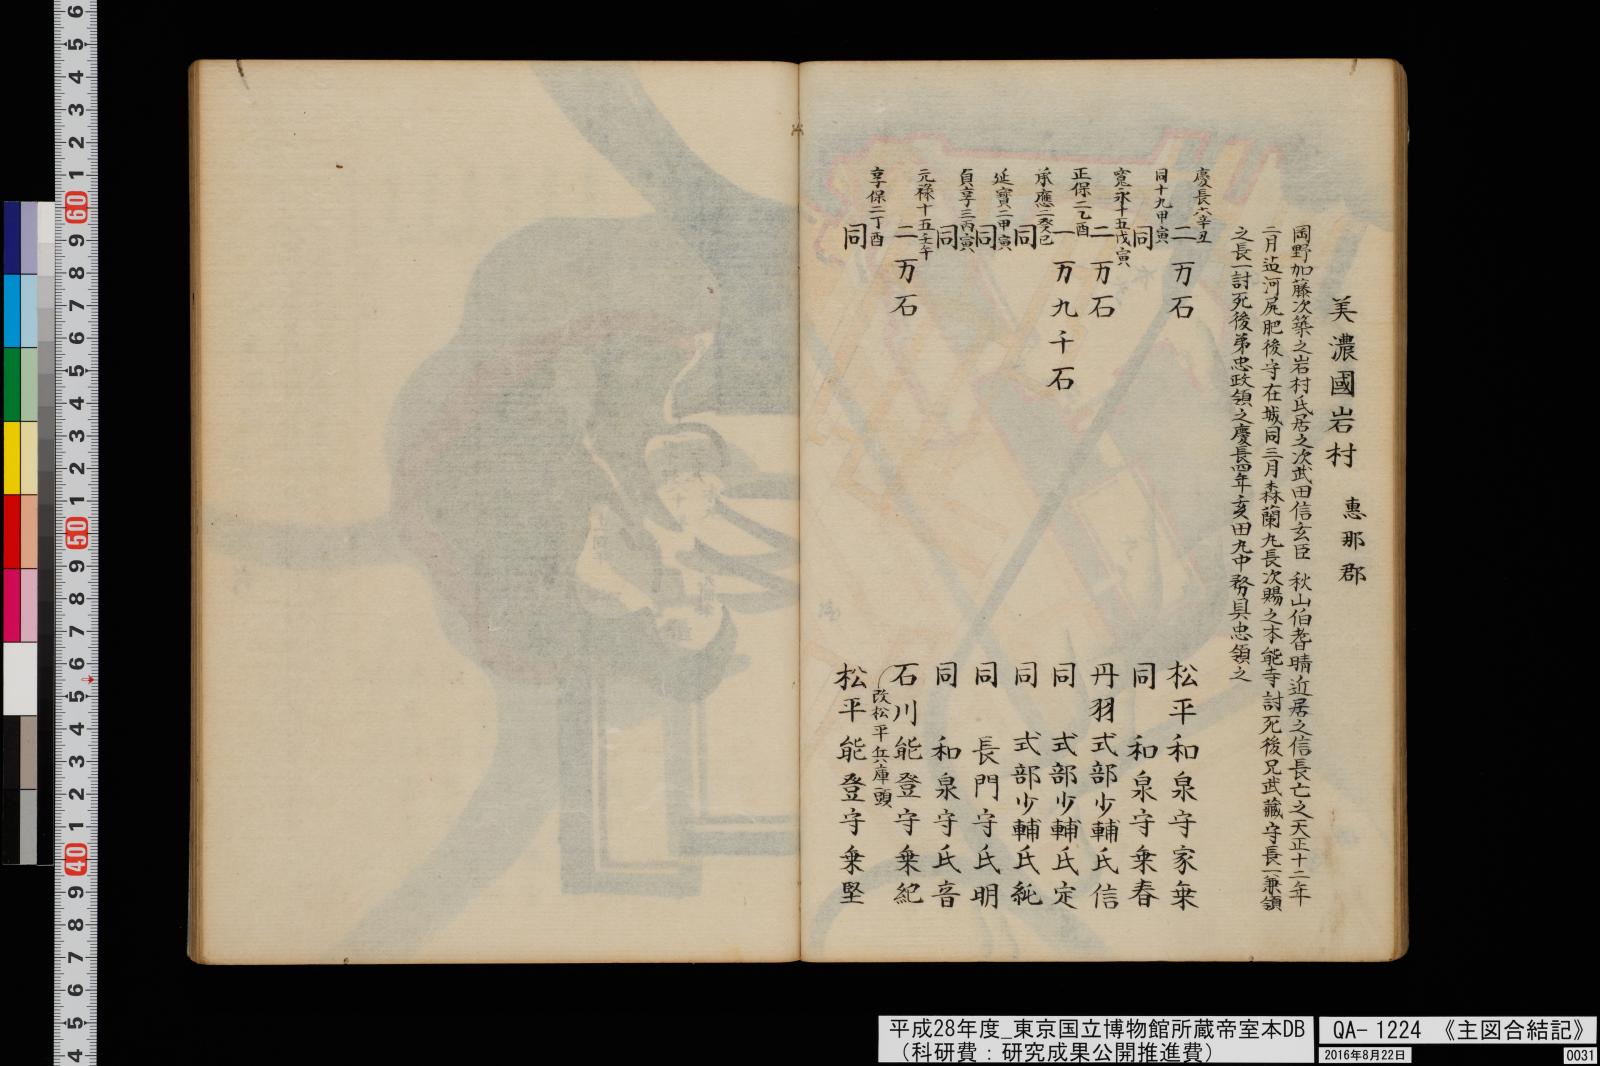 美濃國岩村 惠那郡
岡野加藤次築之岩村氏居之次武田信玄臣 秋山伯耆晴近居之信長亡之天正十二年
二月迠河尻肥後守在城同三月森蘭丸長次賜之本能寺討死後兄武蔵守長一兼領
之長一討死後弟忠政領之慶長四年亥田丸中務具忠領之
慶長六辛丑 二万石 松平和泉守家乗
同十九甲寅 同 同 和泉守乗春
寛永十五戊寅 二万石 丹羽式部少輔氏信
正保二乙酉 一万九千石 同 式部少輔氏定
承應二癸巳 同 同 式部少輔氏純
延寳二甲寅 同 同 長門守氏明
貞享三丙寅 同 同 和泉守氏音
元禄十五壬午 二万石 石川能登守乗紀
改松平兵庫頭
享保二丁酉 同 松平能登守乗堅
平成28年度_東京国立博物館所蔵帝室本DB
(科研費：研究成果公開推進費)
QA-1224 《主図合結記》
2016年8月22日
0031